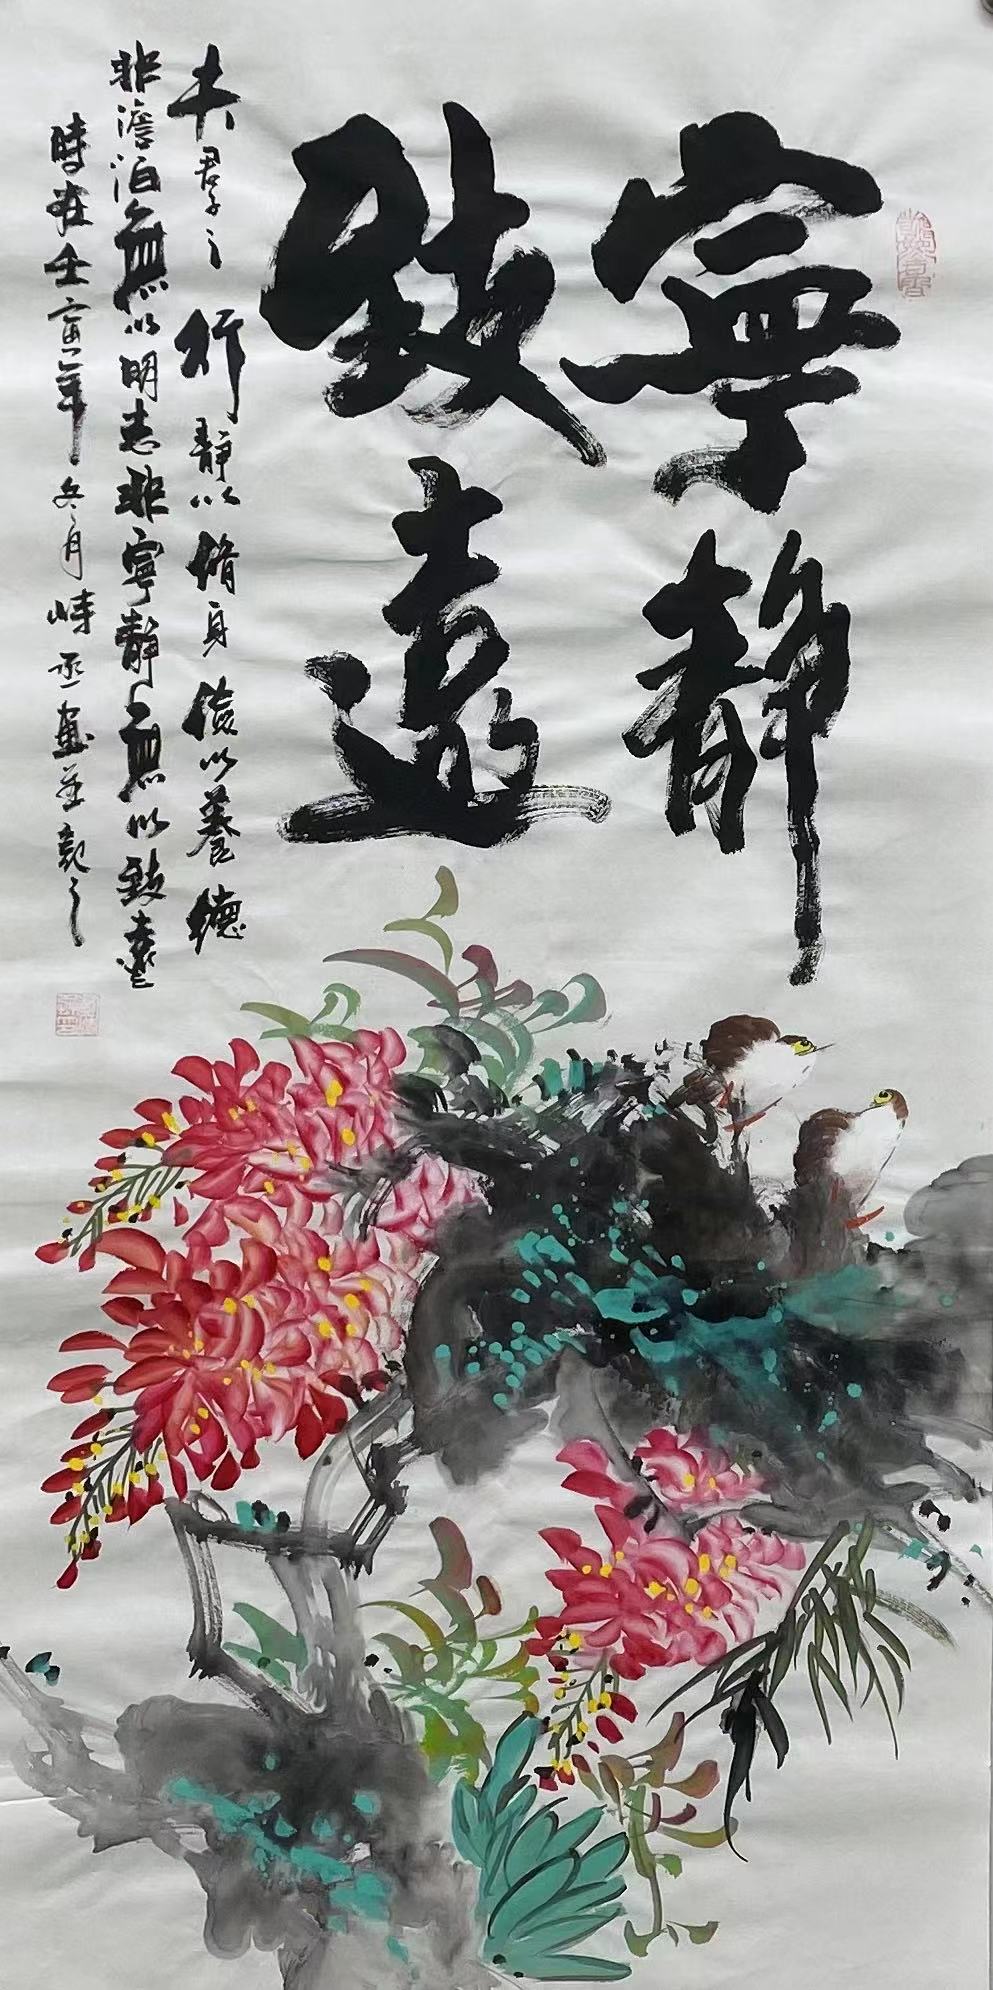 寧靜
致遠
夫君子之行靜以脩身儉以養德
非澹泊無以明志非寧靜無以致遠
時在壬寅年冬月峙丞畫並題之